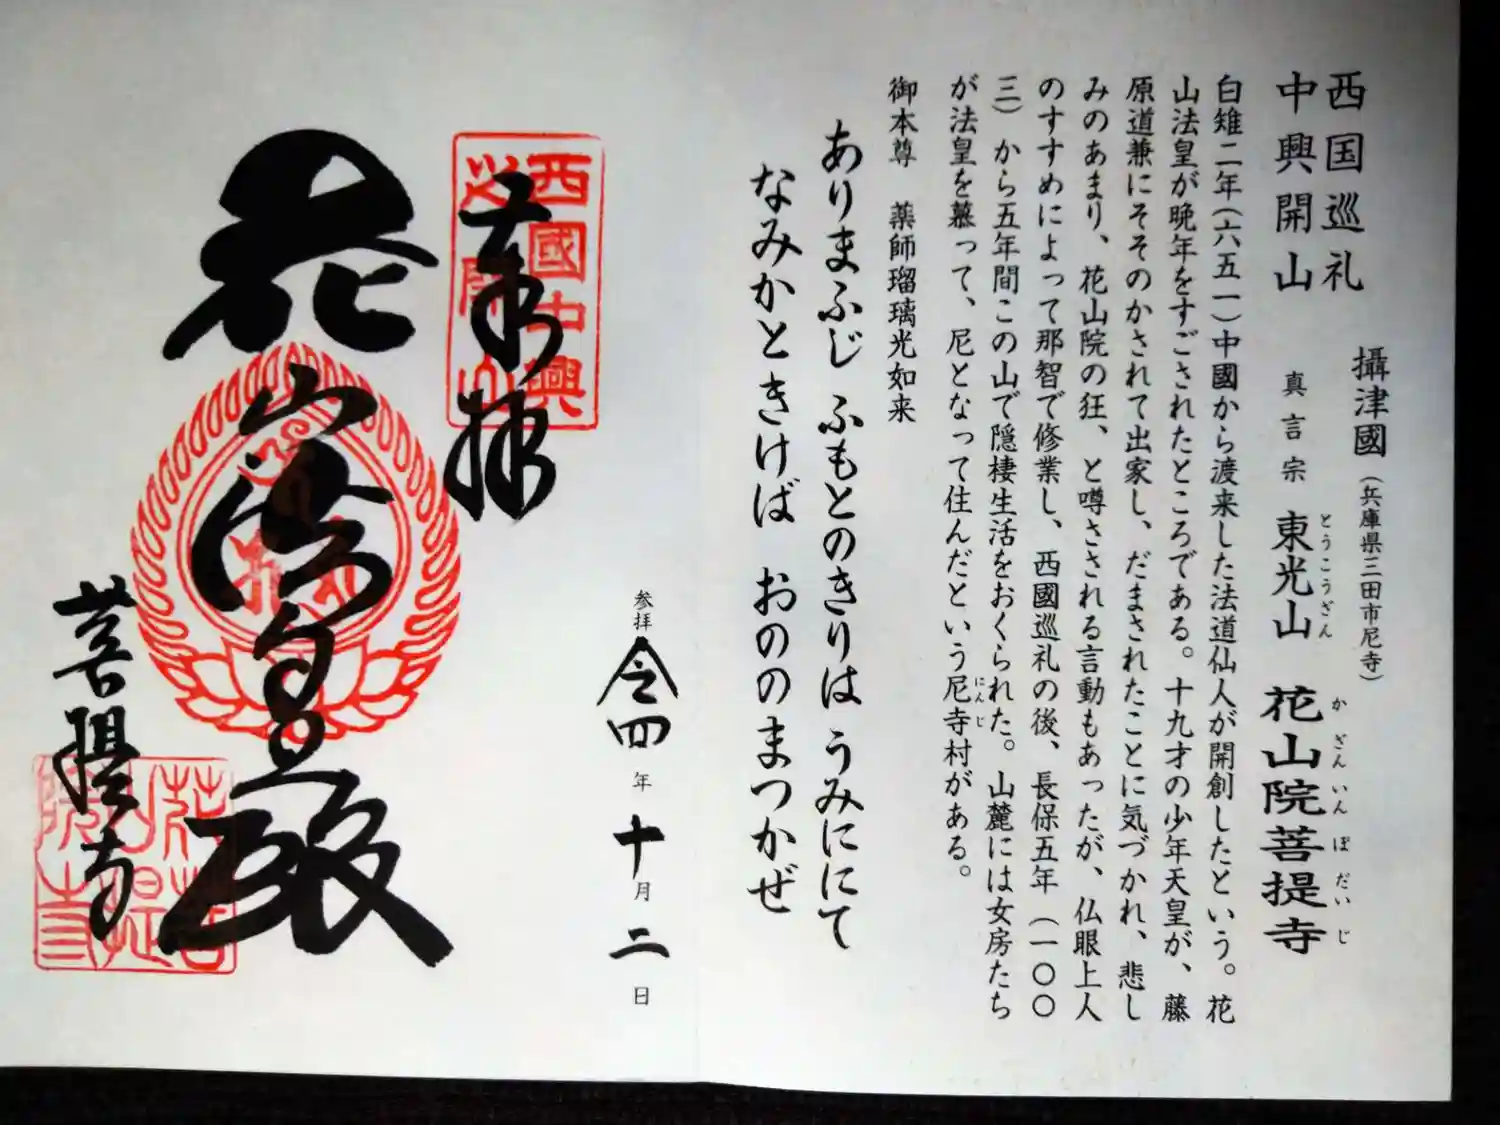 西国巡礼
中興開山
攝津國(兵庫県三田市尼寺)
真言宗 東光山 花山院菩提寺
とうこうざん
かざんいんぼだいじ
白雉二年(六五一)中國から渡来した法道仙人が開創したという。花
山法皇が晩年をすごされたところである。十九才の少年天皇が、藤
原道兼にそそのかされて出家し、だまされたことに気づかれ、悲し
みのあまり、花山院の狂、と噂さされる言動もあったが、仏眼上人
のすすめによって那智で修業し、西國巡礼の後、長保五年(一〇〇
三)から五年間この山で隠棲生活をおくられた。山麓には女房たち
が法皇を慕って、尼となって住んだという尼寺村がある。
にんじ
御本尊 薬師瑠璃光如来
ありまふじ ふもとのきりは うみににて
なみかときけば おののまつかぜ
参拝 令四年十月二日
西國中興
開山
奉拝
花山法皇殿
菩提寺